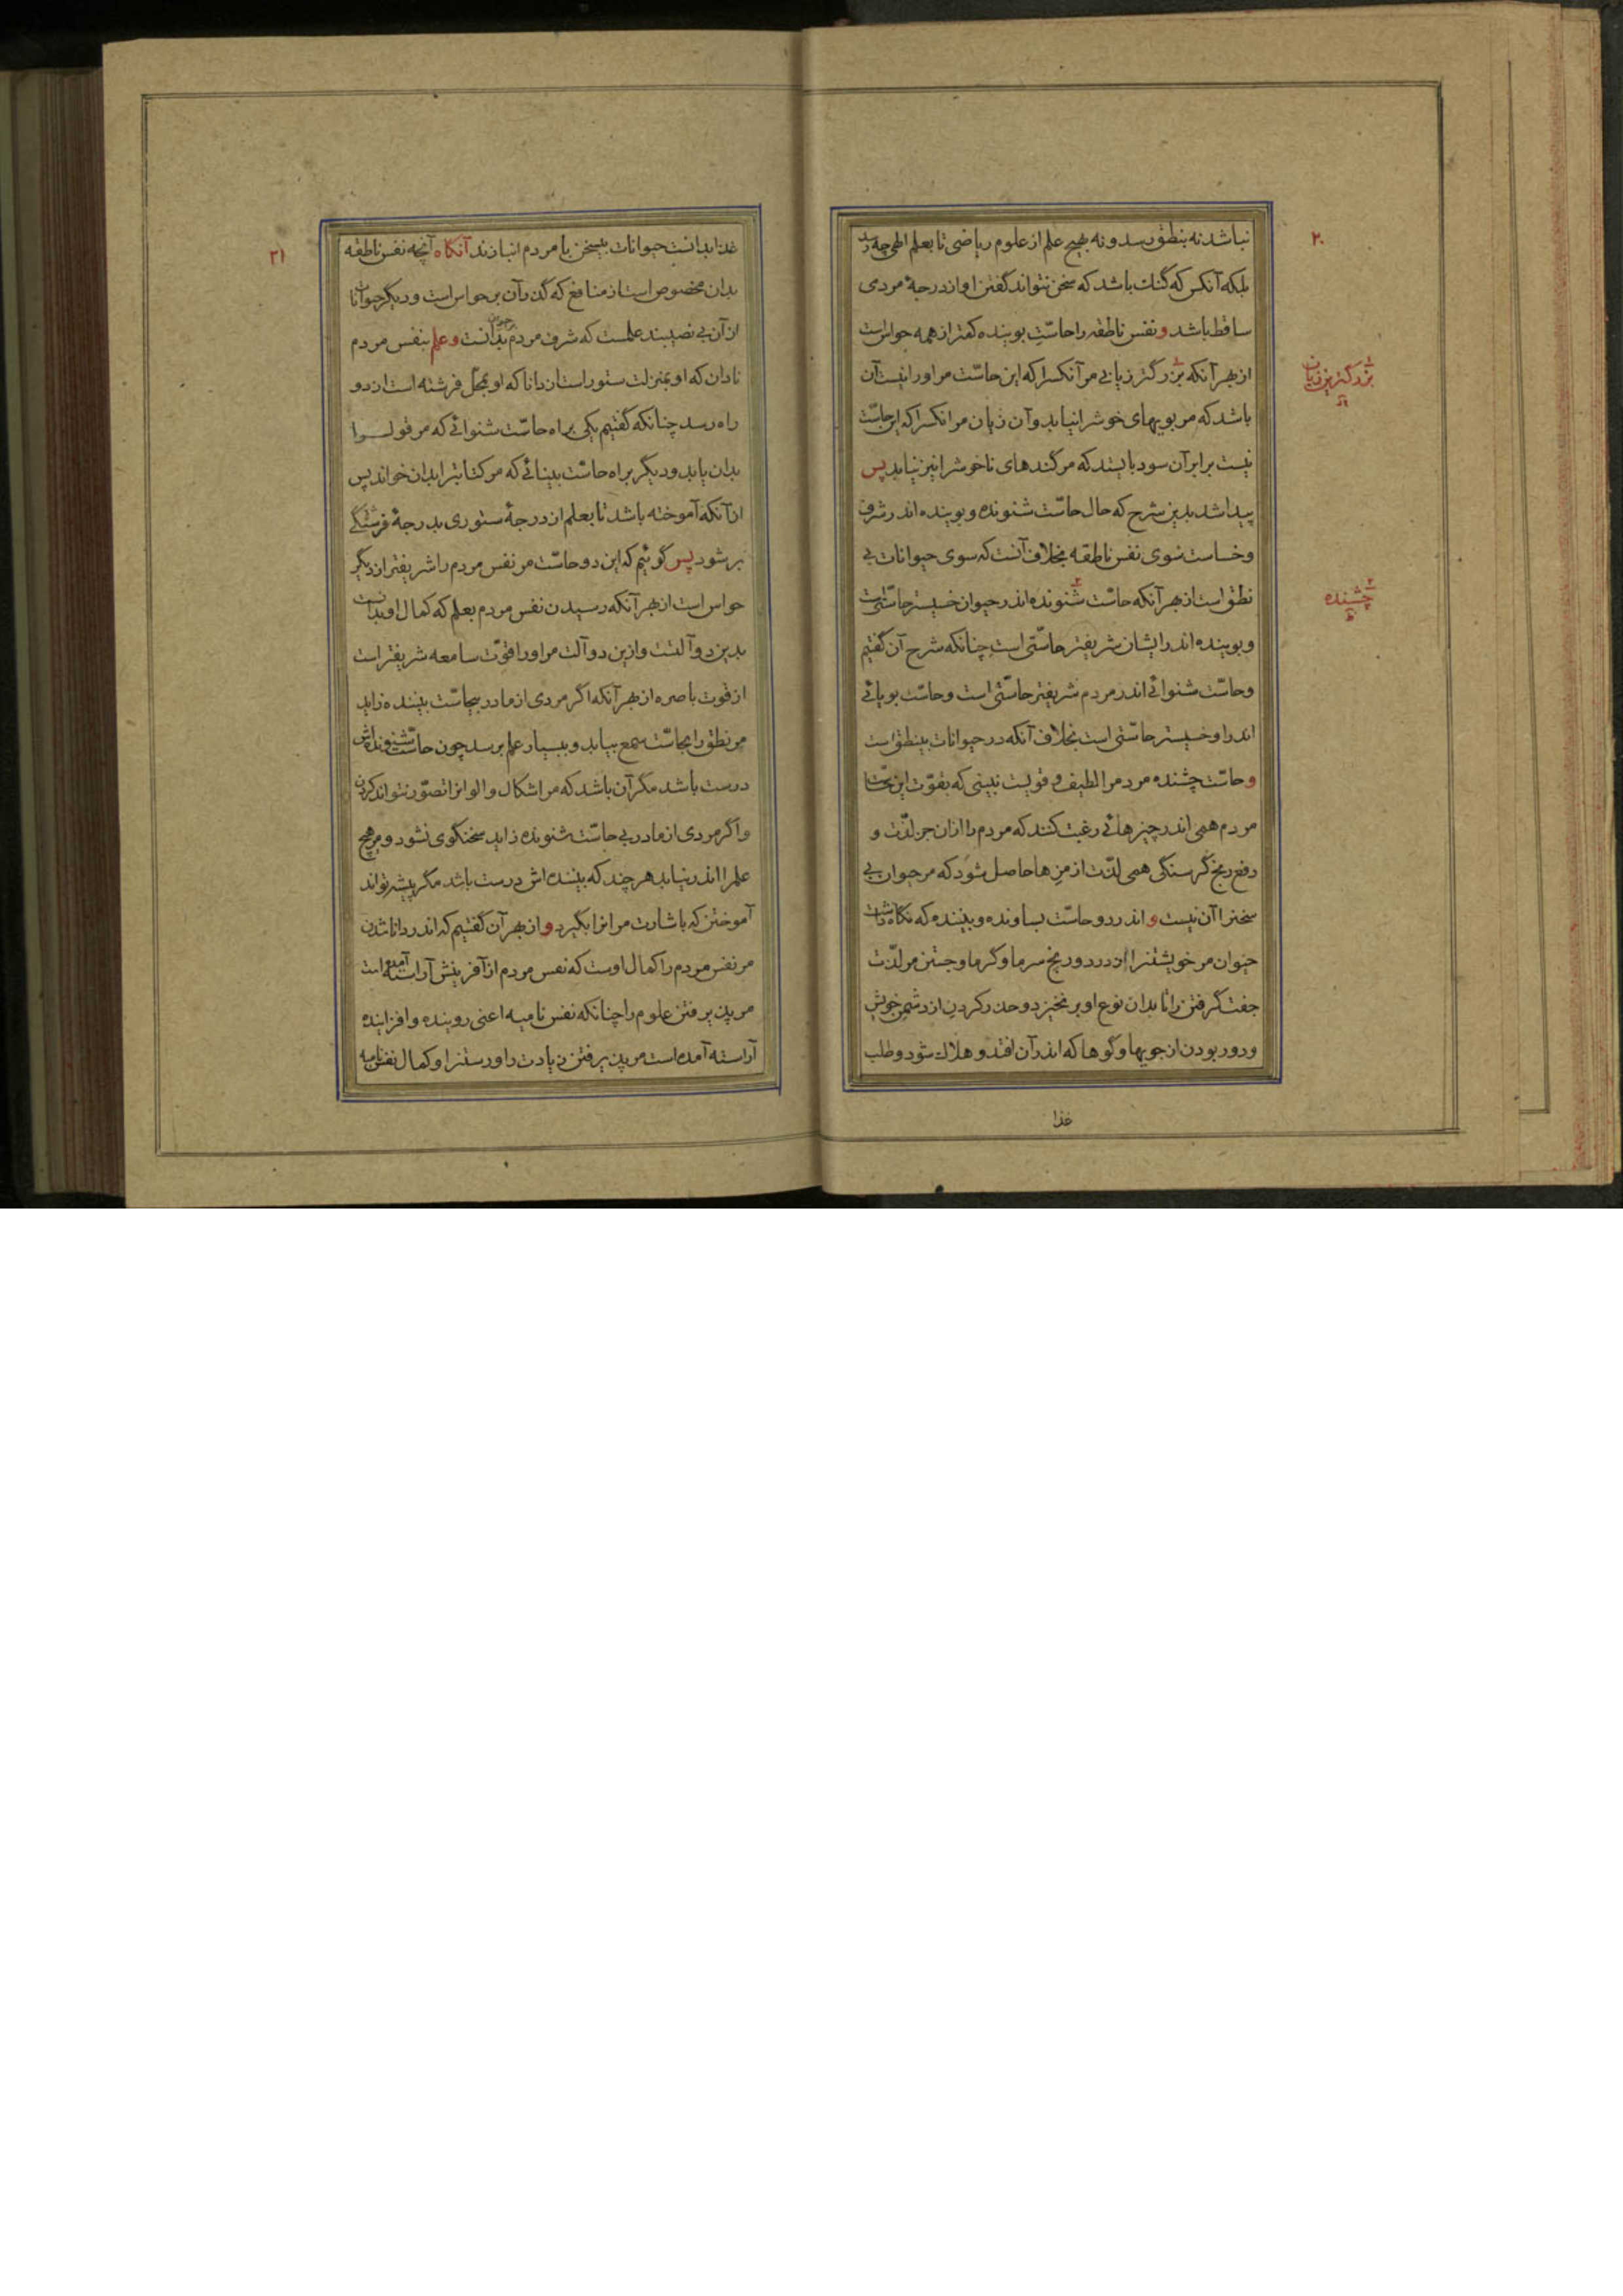 ۲۰
نباشد نه بنطق رسد و نه بهیچ علم از علوم ریاضی تا بعلم الهی چه رسد
بلکه آنکس که گنک باشد که سخن نتواند گفتن او از درجهٔ مردی
ساقط باشد و نفس ناطقه را حاسّت بوینده کمتر از همه حواس است
از بهر آنکه بزرگتر زیانی مر آنکسرا که این حاسّت مر او را نیست آن
بزرگترین زیان
باشد که مر بویهای خوشرا نیابد و آن زیان مر انکسرا که این حاسّت
نیست برابر آن سود بایستد که مر گندهای ناخوشرا نیز نیابد پس
پیدا شد بدین شرح که حال حاسّت شنونده و بوینده اندر شرف
و خساست سوی نفس ناطقه بخلاف آنست که سوی حیوانات بی
نطق است از بهر آنکه حاسّت شنونده اندر حیوان خسیستر حاسّتی است
چشنده
و بوینده اندر ایشان شریفتر حاسّتی است چنانکه شرح آن گفتیم
و حاسّت شنوائی اندر مردم شریفتر حاسّتی است و حاسّت بویائی
اندر او خسیستر حاسّتی است بخلاف آنکه در حیوانات بینطق است
و حاسّت چشنده مردم را لطیف و قویست نبینی که بقوّت این حاسّت
مردم همی اندر چیزهائی رغبت کنند که مردم را ازان جز لذّت و
دفع رنج گرسنگی همی لذّت از مزها حاصل شود که مر حیوان بی
سخنرا آن نیست و اندر دو حاسّت بساونده و بیننده که نگاه داشت
حیوان مر خویشتنرا از درد و رنج سرما و گرما و جستن مر لذّت
جفت گرفتن را تا بدان نوع او برنخیزد و حذر کردن از دشمن خویش
و دور بودن از جویها و گوها که اندر آن افتد و هلاک شود و طلب
غذا
۲۱
غذا بدانست حیوانات بیسخن با مردم انبازند آنگاه آنچه نفس ناطقه
بدان مخصوص است از منافع که گذر آن بر حواس است و دیگر حیوانات
از آن بی نصیبند علمست که شرف مردم بدانست و علم بنفس مردم
نادان که او بمنزلت ستور است از دانا که او بمحل فرشته است از دو
راه رسد چنانکه گفتیم یکی براه حاسّت شنوائی که مر قول را
بدان یابد و دیگر براه حاسّت بینائی که مر کتابترا بدان خواند پس
از آنکه آموخته باشد تا بعلم از درجهٔ ستوری بدرجهٔ فرشتگی
بر شود پس گوئیم که این دو حاسّت مر نفس مردم را شریفتر از دیگر
حواس است از بهر آنکه رسیدن نفس مردم بعلم که کمال او بدانست
بدین دو آلتست و ازین دو آلت مر او را قوّت سامعه شریفتر است
از قوت باصره از بهر آنکه اگر مردی از مادر بیحاسّت بیننده زاید
مر نطق را بحاسّت سمع بیابد و ببسیار علم برسد چون حاسّت شنونده اش
درست باشد مگر آن باشد که مر اشکال و الوانرا تصوّر نتواند کردن
و اگر مردی از مادر بی حاسّت شنونده زاید سخنگوی نشود و مر هیچ
علم را اندر نیابد هر چند که بیننده اش درست باشد مگر پیشه تواند
آموختن که باشارت مر انرا بگیرد و از بهر آن گفتیم که اندر دانا شدن
مر نفس مردم را کمال اوست که نفس مردم از آفرینش آراسته آمده است
مر پذیرفتن علوم را چنانکه نفس نامیه اعنی روینده و افزاینده
آراسته آمده است مر پذیرفتن زیادت را و رستنرا و کمال نفس نامیه